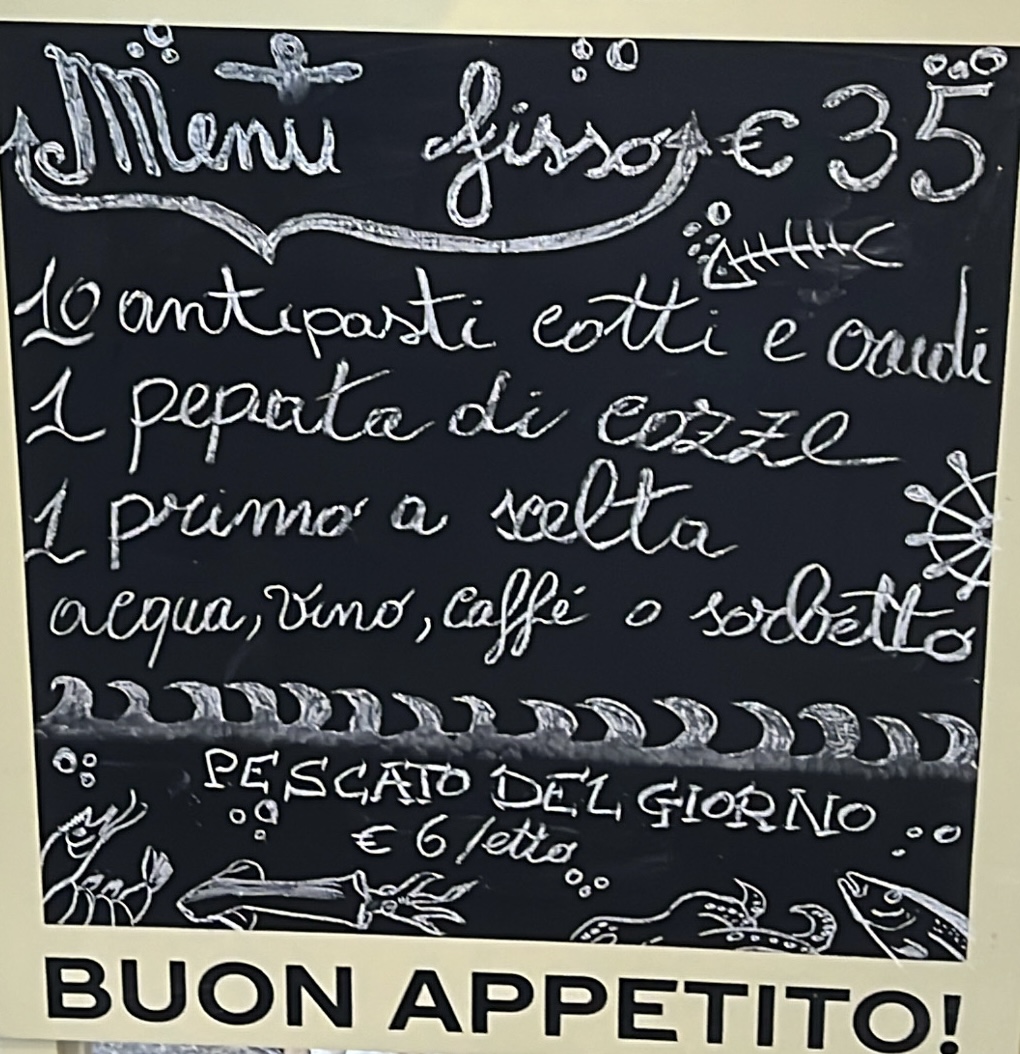 Menù fisso € 35
10 antipasti cotti e crudi
1 pepata di cozze
1 primo a scelta
acqua, vino, caffé o sorbetto
PESCATO DEL GIORNO
€ 6/etto
BUON APPETITO!